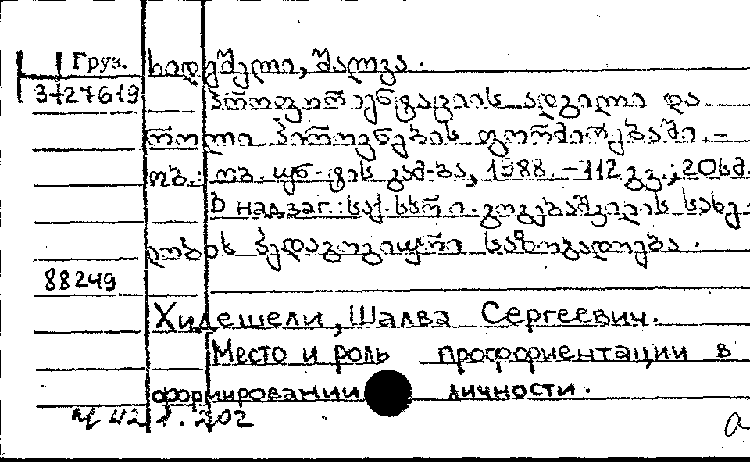 Груз. ხიდეშელი, შალვა.
3-27619 პროფორიენტაციის ადგილი და
როლი პიროვნების ფორმირებაში. –
თბ.: თბ. უნ-ტის გამ-ბა, 1988. – 112 გვ.; 20სმ.
В надзаг.: საქ. სსრ ი. გოგებაშვილის სახე-
ლობის პედაგოგიური საზოგადოება.
88249
Хидешели, Шалва Сергеевич.
Место и роль профориентации в
формировании личности.
Ч 421.202